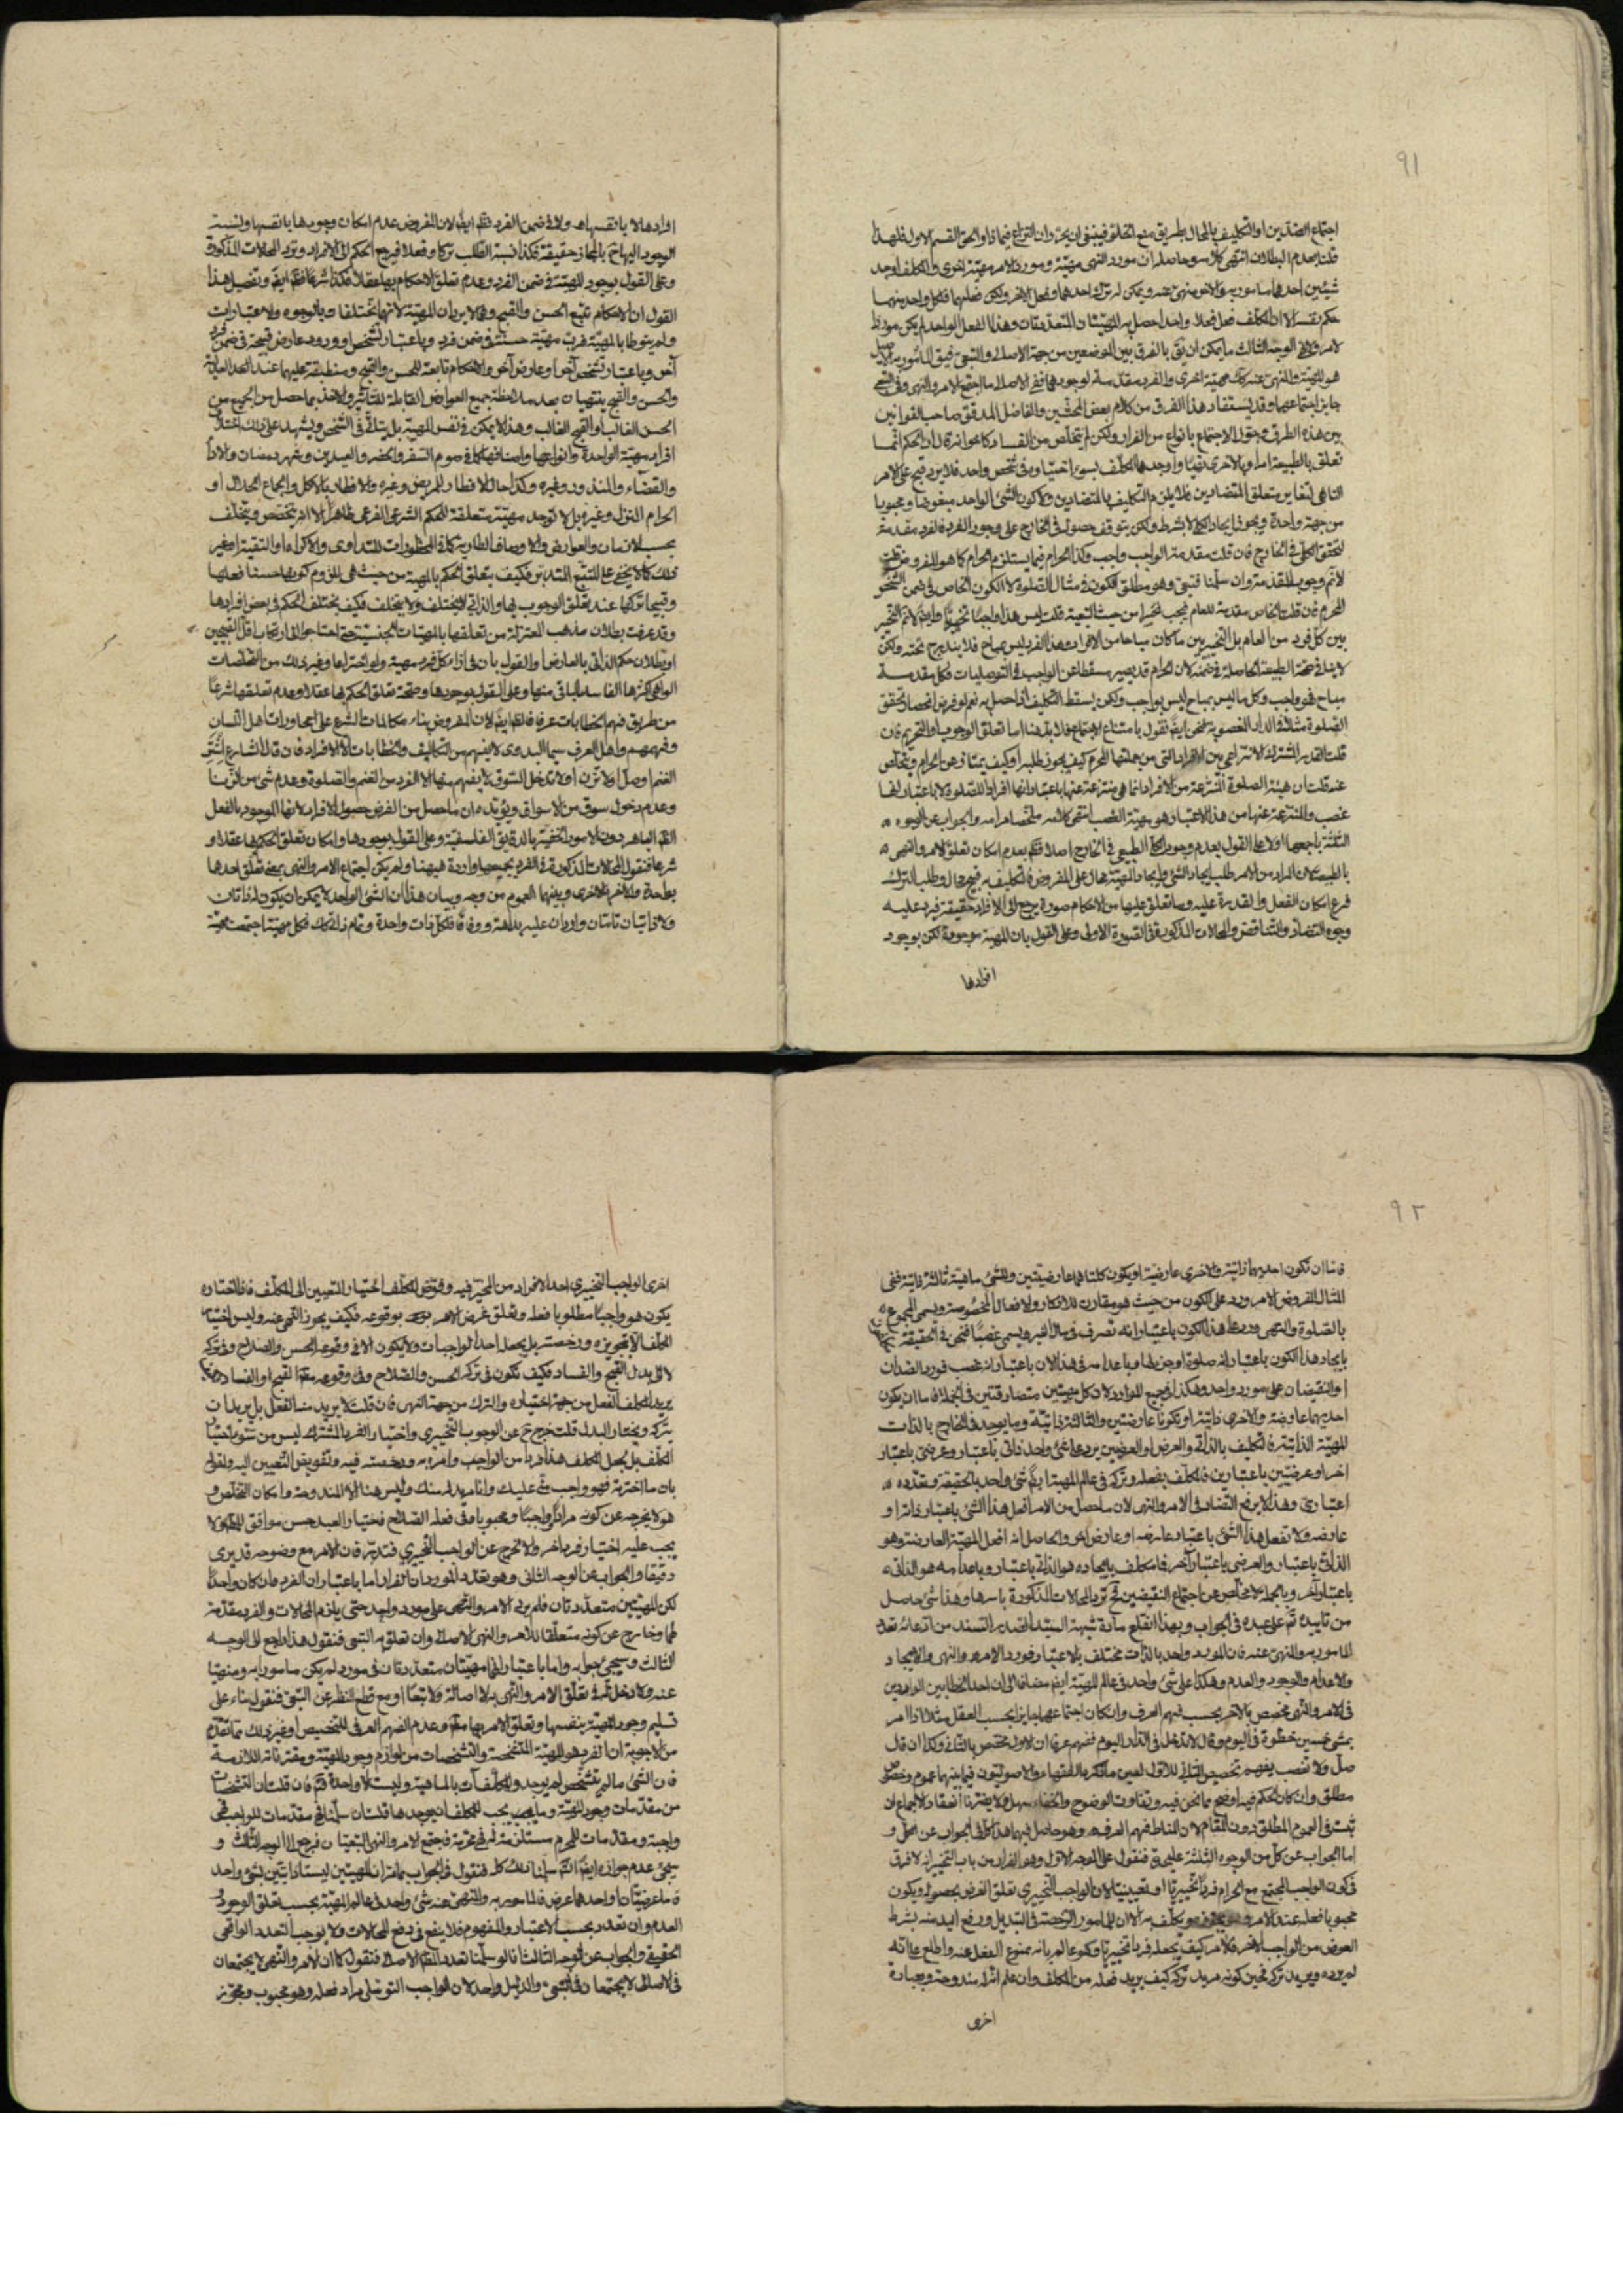 ٩١
اجتماع الضدين او التكليف بالمحال بطريق منع الخلو فينبغي ان يحرر ان النزاع فيما ذا او الحق القسم الاول فلهذا
قلنا بعدم البطلان انتهى كلامه وحاصله ان مورد النهى مهيّة ومورد الامر مهيّة اخرى والمكلف اوجد
شيئين احدهما مامور به والاخر منهى عنه ويمكن له ترك احدهما وفعل الاخر ولكن فعلهما فلكل واحد منهما
حكم نفسه الا ان المكلف فعل فعلا واحدا حصل به المهيّتان المتعددتان وهذا الفعل الواحد لم يكن مورد
الامر والنهى الوجه الثالث ما يمكن ان يقّ بالفرق بين الموضعين من جهة الاصلى والتبعى فيق المأمور به الاصيل
هو المهيّة والمنهى عنه كك مهيّة اخرى والفرد مقدمة لوجودهما ففى الاصلى ما اجتمع الامر والنهى وفى التبعى
جايز اجتماعهما وقد يستفاد هذا الفرق من كلام بعض المحققين والفاضل المدقق صاحب القوانين
بين هذه الطرق وجوّز الاجتماع بانواع من الفرار ولكن لم يتخلص من الفساد كما عرفت قال ان الحكم انما
تعلق بالطبيعة
التناهى لتغاير متعلق المتضادين فلا يلزم التكليف بالمتضادين ولا كون الشئ الواحد مبغوضا ومحبوبا
من جهة واحدة
لتحقق الكلى فى الخارج فان قلت مقدمة الواجب واجب وكذا الحرام فيما يستلزم الحرام كما هو المفروض قلت
لا نم وجوب المقدمة وان سلّمنا فتبعى وهو مطلق الكون فى مثال الصلوة لا الكون الخاص فى ضمن الشخص
المحرم فان قلت الخاص مقدمة للعام فيجب تخييرا من حيث التبعية قلت ليس هذا واجبا تخييريا
بين كل فرد من العام بل التخيير بين ما كان مباحا من الافراد وهذا الفرد ليس بمباح فلا يندرج تحته ولكن
لا ينافى صحة الطبيعة الحاصلة فى ضمنه لان الحرام قد يصير مسقطا عن الواجب فى التوصليات فكل مقدمة
مباح فهو واجب وكل ما ليس بمباح ليس بواجب ولكن يسقط التكليف اذا حصل به نعم لو فرض انحصار تحقق
الصلوة مثلا فى الدار المغصوبة فنحن ايضا نقول بامتناع الاجتماع فلا بد هنا اما تعلق الوجوب او التحريم فان
قلت القدر المشترك الانتزاعى بين الافراد التى من جملتها المحرم كيف يجوز طلبه او كيف يمتاز عن الحرام ويتخلص
عنه قلت ان هيئة الصلوة المنتزعة من الافراد انما هى منتزعة عنها باعتبار انها افراد للصلوة لا باعتبار انها
غصب والمنتزعة عنها من هذا الاعتبار هو مهيّة الغصب انتهى كلامه ملخصا مرامه والجواب عن الوجوه
الثلثة باجمعها اولا على القول بعدم وجود الكلى الطبيعى فى الخارج اصلا فظّ بعدم امكان تعلق الامر والنهى
بالطبيعة لان المراد من الامر طلب ايجاد الشئ وايجاد المهيّة محال على المفروض فالتكليف به قبيح محال وطلب الترك
فرع امكان الفعل والقدرة عليه وما تعلق عليها من الاحكام صورة يرجع الى الافراد حقيقة فيرد عليه
وجوه التضاد والتناقض والمحالات المذكورة فى الصورة الاولى وعلى القول بان المهيّة موجودة لكن بوجود
افرادها
افرادها لا بانفسها ولا فى ضمن الفرد فظّ ايضا لان المفروض عدم امكان وجودها بانفسها ونسبة
الوجود اليها حّ بالمجاز حقيقة فكذا نسبة الطلب تركا وفعلا فيرجع الحكم الى الافراد وترد المحالات المذكورة
وعلى القول بوجود المهيّة فى ضمن الفرد وعدم تعلق الاحكام بها عقلا فكذا شرعا ظّ ايضا وتفصيل هذا
القول ان الاحكام تتبع الحسن والقبح وهما لا يردان المهيّة لانهما تختلفا بالوجوه والاعتبارات
ولم ينوطا بالمهيّة فربّ مهيّة حسنة فى ضمن فرد وباعتبار تشخص وورود عارض قبيحة فى ضمن فرد
آخر وباعتبار تشخص آخر او عارض آخر والاحكام تابعة للحسن والقبح ومنطبقة عليهما عند العدلية
والحسن والقبح ينتهيان بعد ملاحظة جميع العوارض القابلة للتأثير والاخذ بما حصل من الجميع من
الحسن الغالب او القبح الغالب وهذا لا يمكن فى نفس المهيّة بل يتأتى فى الشخص ويشهد على ذلك اختلاف
افراد مهيّة الواحدة وانواعها واصنافها كما فى صوم السفر والحضر والعيدين وشهر رمضان والاداء
والقضاء والمنذور وغيره وكذا حال الافطار للمريض وغيره والافطار بالاكل والجماع الحلال او
الحرام النزل وغيره بل لا توجد مهيّة متعلقة للحكم الشرعى الفرعى ظاهرا الا انه يتخصص ويتخلف
بحسب الازمان والعوارض والاوصاف الطارية كما فى المحظورات للتداوى والاكراه والتقية او غير
ذلك كما لا يخفى على المتتبع المتدبر فكيف يتعلق الحكم بالمهيّة من حيث هى
وقبيحا تركها عند تعلق الوجوب بها والذاتى لا يختلف ولا يتخلف فكيف يختلف الحكم فى بعض افرادها
وقد عرفت بطلان مذهب المعتزلة من تعلقها بالمهيات الجنسية حتى احتاجوا الى ارتكاب اقل القبيحين
او بطلان حكم الذاتى بالعارض او القول بان فى ازاء كل فرد مهيّة
الواهى اكثرها الفاسد الباقى منها وعلى القول بوجودها وصحة تعلق الحكم بها عقلا وعدم تعلقها شرعا
من طريق فهم الخطابات عرفا فظّ ايضا لان المفروض بناء مكالمات الشرع على محاورات اهل اللسان
وفهمهم واهل العرف سيما البدوى لا يفهم من التكاليف والخطابات الا الافراد فان قال الشارع اشتر
الغنم او صلّ او لا تزن او لا تدخل السوق لا يفهم منها الا الفرد من الغنم والصلوة وعدم شئ من الزنا
وعدم دخول سوق من الاسواق ويؤيده ان ما حصل من الغرض حصول الافراد لانها الموجود بالفعل
الظّ الباهر دون الامور الخفية بالدقايق الفلسفية وعلى القول بوجودها وامكان تعلق الحكم بها عقلا و
شرعا فنقول المحالات المذكورة فى الفرد بجميعها واردة هيهنا ولم يكن اجتماع الامر والنهى بمعنى تعلق احدها
بواحدة والاخر بالاخرى وبينهما العموم من وجه وبيان هذا ان الشئ الواحد لا يمكن ان يكون له ذاتان
ولا ذاتيان تامتان واردان عليه بداهة ووفاقا فلكل ذات واحدة وتمام ذاته كك فكل مهيّة اجتمعت بمهيّة
٩٢
فاما ان تكون احديهما ذاتية والاخرى عارضية او يكون كلتاهما عارضيتين وللشئ ماهيّة ثالثة ذاتية ففى
المثال المفروض الامر ورد على الكون من حيث هو مقارن للاذكار والافعال المخصوصة ويسمى المجموع
بالصلوة والنهى ورد على هذا الكون باعتبار انه تصرف فى مال الغير ويسمى غصبا فنحن فى الحقيقة
بايجاد هذا الكون باعتبار انه صلوة او جزئها وباعدامه فى هذا الان باعتبار انه غصب فورد الضدان
او النقيضان على مورد واحد وهكذا فى جميع الموارد لان كل مهيّتين متصادقتين فى الجملة فاما ان يكون
احديهما عارضة والاخرى ذاتية او يكونا عارضتين والثالثة ذاتيّة وما يوجد فى الخارج بالذات
المهيّة الذاتية فالتكليف بالذاتى والعرض او العرضين يرد على شئ واحد ذاتى باعتبار وعرضى باعتبار
اخر او عرضيين باعتبارين فالمكلف بفعله وتركه فى عالم المهيّة ايضا شئ واحد بالحقيقة وتعدده
اعتبارى وهذا لا يرفع التضاد فى الامر والنهى لان ما حصل من الامر افعل هذا الشئ باعتبار ذاته او
عارضه ولا تفعل هذا الشئ باعتبار عارضه او عارض اخر والحاصل انه افعل المهيّة العارضة وهو
الذاتى باعتبار والعرضى باعتبار آخر فالمكلف بايجاده هو الذاتى باعتبار وباعدامه هو الذاتى
باعتبار آخر وبالجملة لا مخلص عن اجتماع النقيضين فح ترد المحالات المذكورة باسرها وهذا شئ حاصل
من تاييده تم على عبده فى الجواب وبهذا انقلع مادة شبهة السيّد الصدر السند من ادعائه تعدد
المامور به والمنهى عنه فان المورد واحد بالذات مختلف بالاعتبار فورد الامر والنهى والايجاد
والاعدام والوجود والعدم وهكذا على شئ واحد فى عالم المهيّة ايضا مضافا الى ان احد الخطابين الواردين
فى الامر والنهى مخصص بالاخر بحسب فهم العرف وان كان اجتماعهما جايزا بحسب العقل مثلا اذا امر
بمشى خمسين خطوة فى اليوم وقال لا تدخل فى الدار اليوم ففهم عرفا ان الاول مختص بالثانى وكذا ان قال
صلّ ولا تغصب يفهم تخصيص الثانى للاول لعين ما ذكره الفقهاء والاصوليون فيما بينهما عموم وخصوص
مطلق وان كان الحكم فيه اوضح مما نحن فيه وتفاوت الوضوح والخفاء سهل ولا يضرنا انعقاد الاجماع ان
ثبت فى العموم المطلق دون المقام لان المناط فهم العرف وهو حاصل فيهما هذا كله فى الجواب عن الكل و
اما الجواب عن كل من الوجوه الثلثة عليحدة فنقول على الوجه الاول وهو الفرار من باب التخيير انه لا فرق
فى كون الواجب المجتمع مع الحرام فردا تخييريا او تعيينيا لان الواجب التخييرى تعلق الغرض بحصوله ويكون
محبوبا فعله عند الامر
العوض من الواجب الاخر فالامر كيف يجعله فردا تخييريا
لم يرده ويريد تركه فحين كونه مريد تركه كيف يريد فعله من المكلف وان علم انّ له مندوحة وبعبارة
اخرى
اخرى الواجب التخييرى احد الافراد من المخيّر فيه وفوّض المكلف اختيار التعيين الى المكلف فاذا اختاره
يكون هو واجبا مطلوبا فعله وتعلق غرض الامر بوقوعه فكيف يجوز النهى عنه وليس اختيار
المكلف الا بتجويزه ورخصته بل يجعل احد الواجبات ولا يكون الا فى وقوعه الحسن والصلاح وفى تركه
لا الى بدل القبح والفساد فكيف تكون فى تركه الحسن والصلاح وفى وقوعه القبح او الفساد
يريد المكلف الفعل من جهة اختياره والترك من جهة النهى فان قلت لا يريد منه الفعل بل يريد ان
يتركه ويختار البدل قلت خرج حّ عن الوجوب التخييرى واختيار الفرد المشترك ليس من سوء اختيار
المكلف بل بجعل المكلف هذا فردا من الواجب وامره به ورخصته فيه وتفويض التعيين اليه ولقوله
بان ما اخترته فهو واجب منّى عليك وانا مريد له منك وليس هنا الا المندوحة وامكان التخلص و
هو لا يخرجه عن كونه مرادا واجبا ومحبوبا وفى فعله الصلاح فاختيار العبد حسن موافق للحكمة ولا
يجب عليه اختيار فرد اخر والا لخرج عن الواجب التخييرى فتدبّر فان الامر مع وضوحه قد يرى
دقيقا والجواب عن الوجه الثانى وهو تعدد الموردان الفرار اما باعتبار ان الفرد وان كان واحدا
لكن المهيّتين متعددتان فلم يرد الامر والنهى على مورد واحد حتى يلزم المحالات والفرد مقدمة
لهما وخارج عن كونه متعلقا للامر والنهى الاصلى وان تعلق به التبعى فنقول هذا راجع الى الوجه
الثالث وسيجئ جوابه واما باعتبار انهما مهيّتان متعددتان فى مورد لم يكن مامورا به ومنهيا
عنه ولا دخل له فى تعلق الامر والنهى به لا اصالة ولا تبعا او مع قطع النظر عن التبعى فنقول بناء على
تسليم وجود المهيّة بنفسها وتعلق الامر بها وعدم الفهم العرفى للتخصيص او غير ذلك مما تقدم
من الاجوبة ان الفرد هو المهيّة المتشخصة والتشخصات من لوازم وجود المهيّة ومقترناته اللازمة
فان الشئ ما لم يتشخص لم يوجد والمكلفات بالماهية وليست الا واحدة فتم فان قلت ان التشخصات
من مقدمات وجود المهيّة وما يجب يجب للمكلف ان يوجدها قلت ان سلّمنا فى مقدمات للواجب فهى
واجبة ومقدمات للمحرم مستلزمة له فهى محرمة فاجتمع الامر والنهى التبعيان فرجع الى الوجه الثالث و
سيجئ عدم جوازه ايضا ثم سلّمنا ذلك كله فنقول فى الجواب بما مرّ ان المهيّتين ليستا ذاتيتين لشئ واحد
فاما عرضيتان او احدهما عرض فالمامور به والمنهى عنه شئ واحد فى عالم المهيّة بحسب تعلق الوجود و
العدم وان تعدد بحسب الاعتبار والمفهوم فلا ينفع فى دفع المحالات ولا يوجب التعدد الواقعى
الحقيقى والجواب عن الوجه الثالث انا لو سلّمنا تعدد النظر الاصلى فنقول كما ان الامر والنهى لا يجتمعان
فى الاصلى لا يجتمعان فى التبعى والدليل واحد لان الواجب التوصلى مراد فعله وهو محبوب ومجوّز